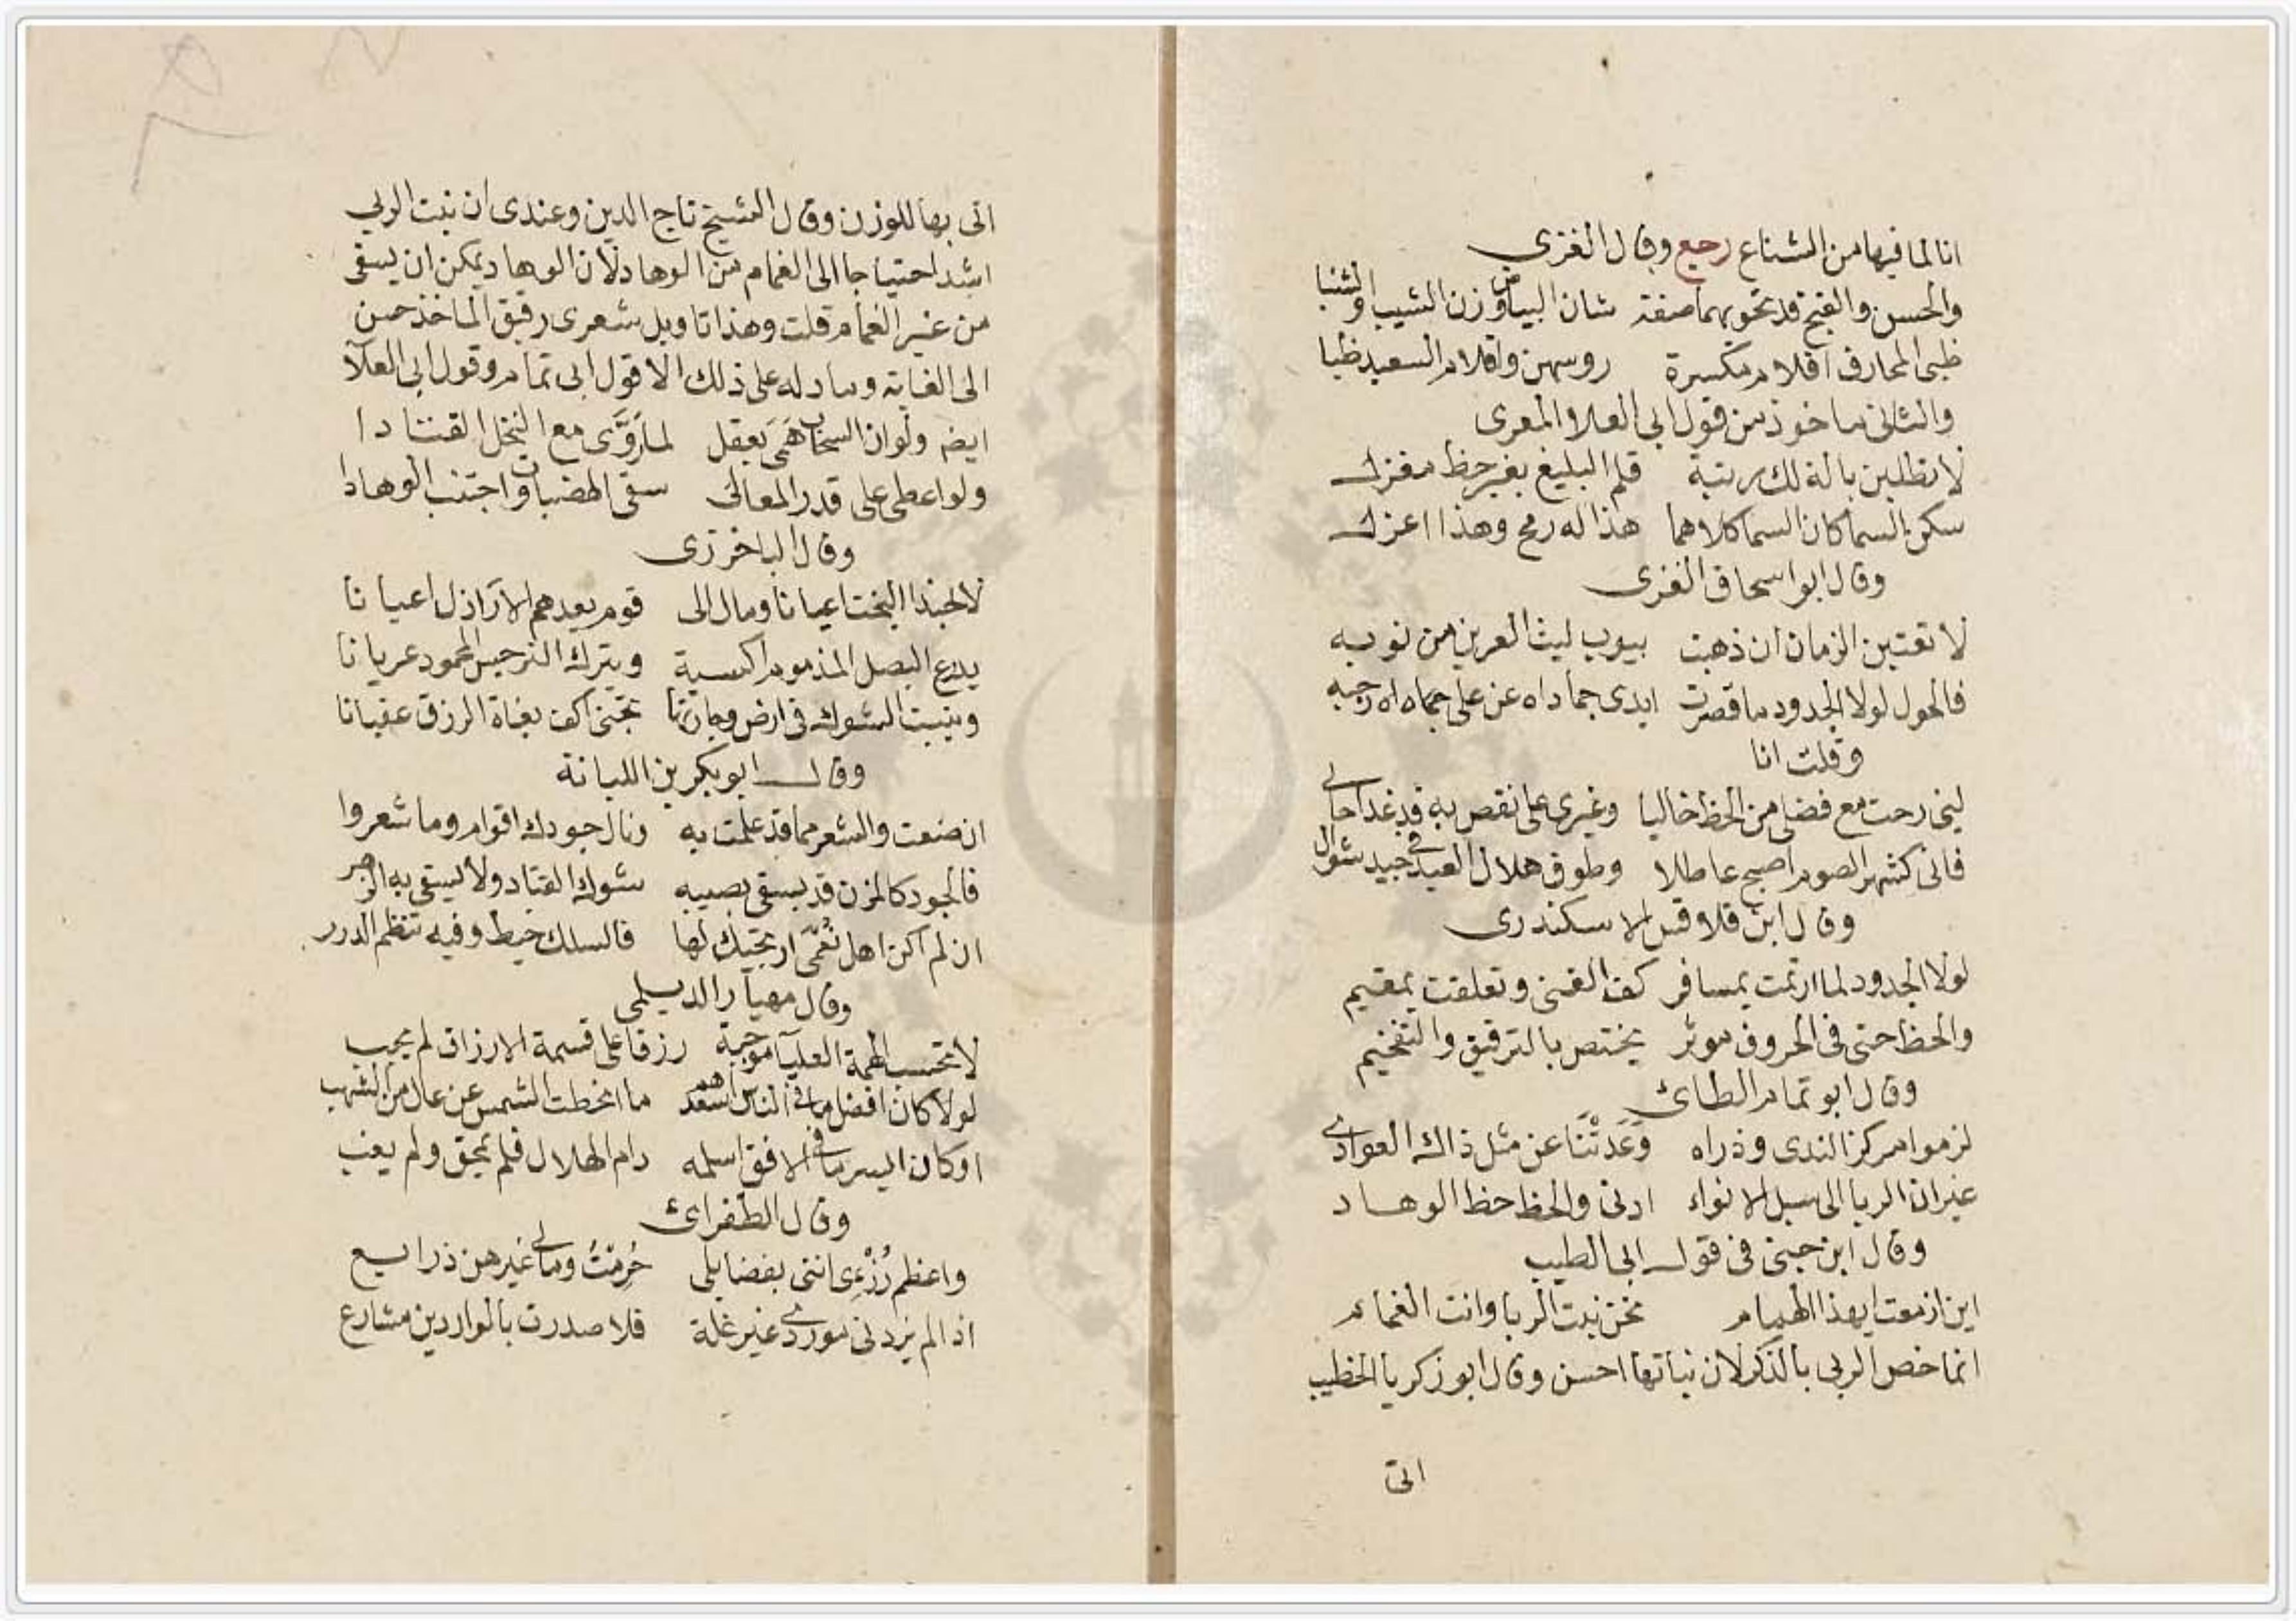 انا لما فيها من الشناع رجع وقال الغزى
والحسن والقبح قد تحويهما صفة شان البياض وزن الشيب والشنبا
ظبى المحارف اقلام مكسرة روسهن واقلام السعيد ظبا
والثانى ماخوذ من قول ابى العلا المعرى
لا تطلبن بالة لك رتبة قلم البليغ بغير حظ مغزل
سكن السماكان السما كلاهما هذا له رمح وهذا اعزل
وقال ابو اسحاق الغزى
لا تعتبن الزمان ان ذهبت بيوب ليث العرين من نوبه
فالحول لولا الجدود ما قصرت ايدى جماداه عن على رجبه
وقلت انا
لئن رحت مع فضلى من الحظ خاليا وغيرى على نقص به قد غدا حالى
فانى كشهر الصوم اصبح عاطلا وطوق هلال العيد فى جيد شوال
وقال ابن قلاقس الاسكندرى
لولا الجدود لما ارتمت بمسافر كف الغنى وتعلقت بمقيم
والحظ حتى فى الحروف موثر يختص بالترقيق والتفخيم
وقال ابو تمام الطائ
لزموا مركز الندى وذراه وَعَدَتْنَا عن مثل ذاك العوادى
غير ان الربا الى سبل الانواء ادنى والحظ حظ الوهاد
وقال ابن جنى فى قول ابى الطيب
اين ازمعت ايهذا الهمام نحن نبت الربا وانت الغمام
انما خص الربى بالذكر لان نباتها احسن وقال ابو زكريا الخطيب
اتى
اتى بها للوزن وقال الشيخ تاج الدين وعندى ان نبت الربي
اشد احتياجا الى الغمام من الوهاد لان الوهاد يمكن ان يسقى
من غير الغمام قلت وهذا تاويل شعرى رقيق الماخذ حسن
الى الغاية وما دله على ذلك الا قول ابى تمام وقول ابى العلآ
ايضه ولو ان السحاب هَمَى بعقل لما رَوَّى مع النخل القتادا
ولو اعطى على قدر المعالى سقى الهضبات واجتنب الوهادا
وقال الباخرزى
لا حبذا البخت اعيانا ومال الى قوم يعدهم الارَاذل اعيانا
يدرع البصل المذموم اكسية ويترك النرجس المحمود عريانا
وينبت الشوك فى ارض تجنى اكف بغاة الرزق عقيانا
وقال ابو بكر بن اللبانة
ان ضعت والشعر مما قد علمت به ونال جودك اقوام وما شعروا
فالجود كالمزن قد يسقى بصيبه شوك القتاد ولا يسقى به الزهر
ان لم اكن اهل نُعْمَى ارتجيك لها فالسلك خيط وفيه تنظم الدرر
وقال مهيار الديلمى
لا تحسب الهمة العليآ موجبة رزقا على قسمة الارزاق لم يجب
لو لا كان افضل ما فى الناس اسعدهم ما انحطت الشمس عن عال من الشهب
او كان ايسر ما فى الافق اسلمه دام الهلال فلم يمحق ولم يغب
وقال الطغرائ
واعظم رُزْءِى اننى بفضايلى حُرِمْتُ ومالى غيرهن ذرايع
اذا لم يزدنى موردى غير غلة فلا صدرت بالواردين مشارع